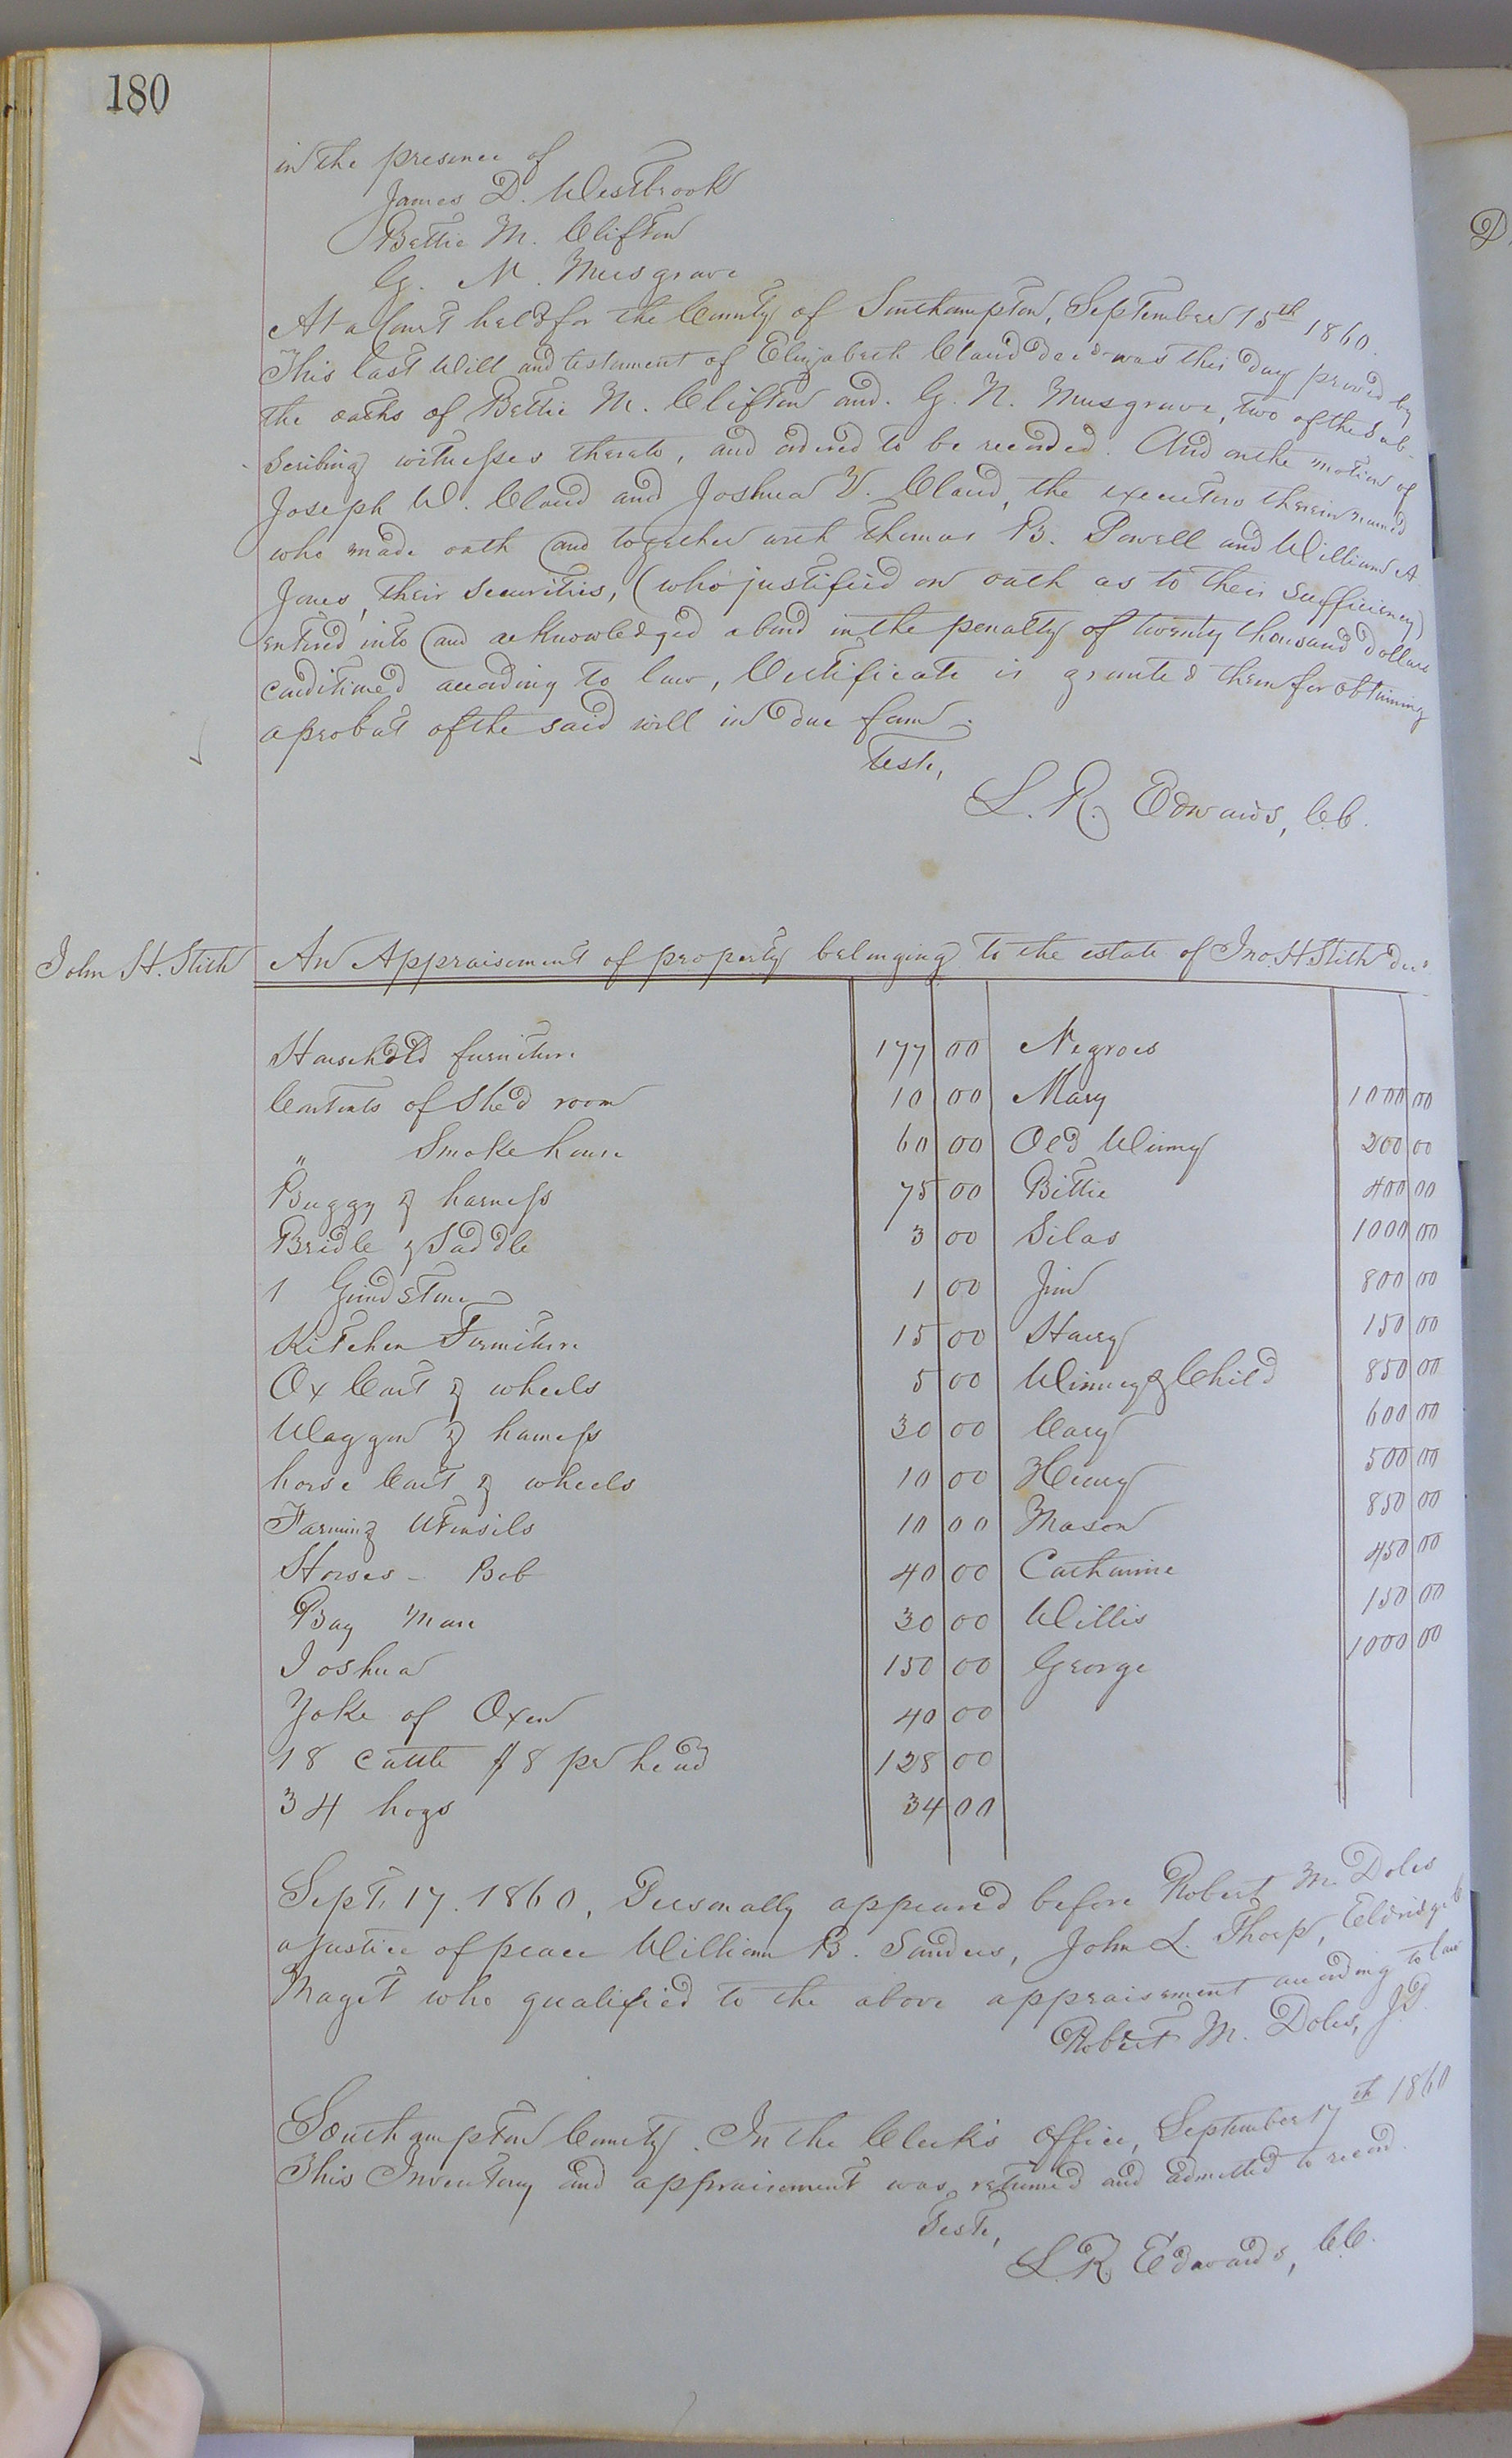 180
in the presence of
James D. Westbrook
Bettie M. Clifton
G. N. Musgrave
At a Court held for the County of Southampton, September 15th 1860.
This last Will and testament of Elizabeth Claud decd was this day proved by
the oaths of Bettie M. Clifton and. G. N. Musgrave, two of the sub-
scribing witnesses thereto, and ordered to be recorded. And on the motion of
Joseph W. Claud and Joshua V. Claud, the executors therein named
who made oath and together with Thomas B. Powell and William A.
Jones, their securities, (who justified on oath as to their sufficiency)
entered into and acknowledged a bond in the penalty of twenty thousand dollars
conditioned according to law, Certificate is granted them for obtaining
a probat of the said will in due form.
Teste,
L. R. Edwards, C.C.
John H. Stith An Appraisement of property belonging to the estate of Jno. H Stith decd.
Household furniture 177 00 Negroes
Contents of Shed room 10 00 Mary 1000 00
" Smoke house 60 00 Old Winny 200 00
Buggy & harness 75 00 Bettie 400 00
Bridle & Saddle 3 00 Silas 1000 00
1 Grindstone 1 00 Jim 800 00
Kitchen Furniture 15 00 Harry 150 00
Ox Cart & wheels 5 00 Winney & Child 850 00
Waggon & harness 30 00 Cary 600 00
horse Cart & wheels 10 00 Henry 500 00
Farming Utensils 10 00 Mason 850 00
Horses - Bob 40 00 Catharine 450 00
Bay Mare 30 00 Willis 150 00
Joshua 150 00 George 1000 00
Yoke of Oxen 40 00
18 cattle $8 pr head 128 00
34 hogs 34 00
Sept. 17. 1860, Personally appeared before Robert M. Doles
a Justice of peace William B. Sanders, John L. Thorp, Eldridge C
Maget who qualified to the above appraisement according to law
Robert M. Doles, J.P.
Southampton County. In the Clerk's Office, September 17th 1860
This Inventory and appraisement was returned and admitted to record.
Teste,
L. R. Edwards, C.C.